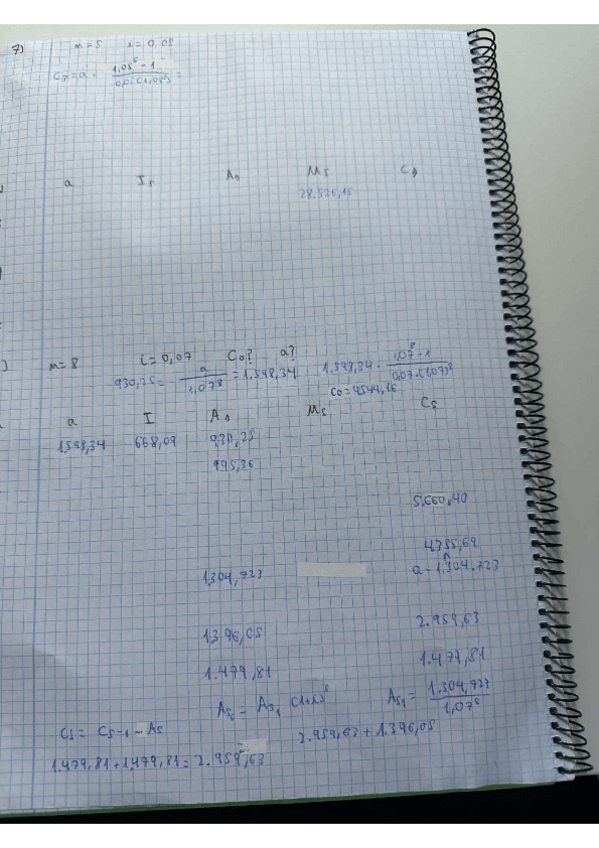 7) n=5 i=0,05
C₀=a · 1,05⁵ - 1 / 0,05(1,05)⁵ =
a Iₛ Aₛ Mₛ Cₛ
28.526,15
n=8 i=0,07 C₀? a?
930,25 = a / 1,07⁸ = 1.598,34 1.598,34 · 1,07⁸ - 1 / 0,07·(1,07)⁸
C₀=9544,16
a I Aₛ Mₛ Cₛ
1598,34 668,09 930,25
995,36
5.660,40
4355,69
1304,723 a - 1.304,723
2.959,63
1396,05
1.479,81
1.479,81
Aₛ₆ = Aₛ₁ (1+i)⁵ Aₛ₁ = 1.304,723 / 1,07⁵
Cₛ = Cₛ₋₁ - Aₛ 2.959,63 + 1.396,05
1.479,81+1.479,81 = 2.959,63